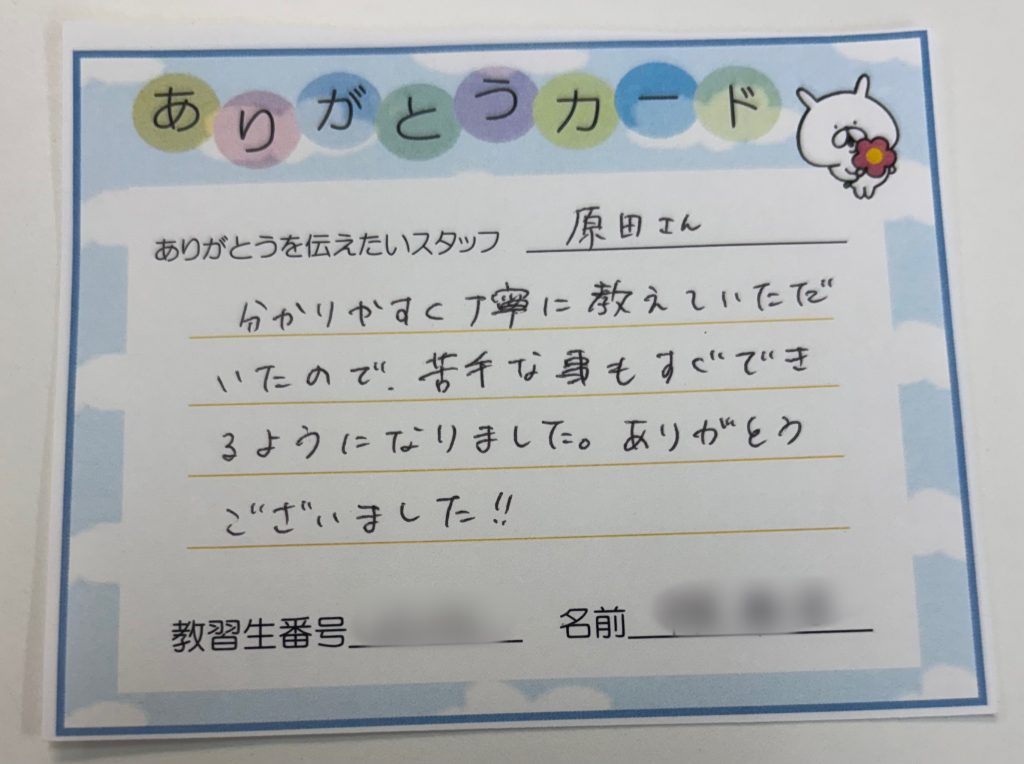 ありがとうカード
ありがとうを伝えたいスタッフ 原田さん
分かりやすく丁寧に教えていただ
いたので、苦手な事もすぐでき
るようになりました。ありがとう
ございました!!
教習生番号 名前